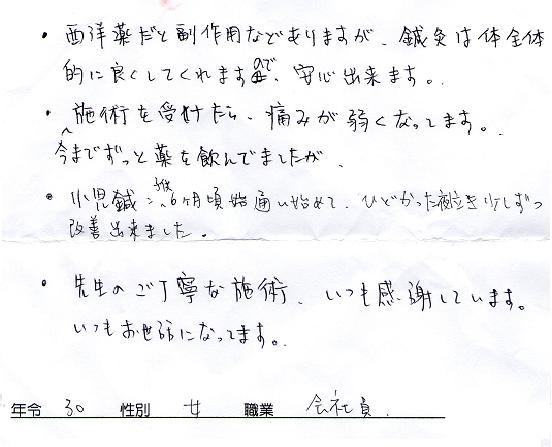 ・西洋薬だと副作用などありますが、鍼灸は体全体
的に良くしてくれますので、安心出来ます。
・施術を受けたら、痛みが弱くなってます。
今までずっと薬を飲んでましたが、
・小児鍼:生後6ヶ月頃 通い始めて、ひどかった夜泣き少しずつ
改善出来ました。
・先生のご丁寧な施術、いつも感謝しています。
いつもお世話になってます。
年令 30 性別 女 職業 会社員